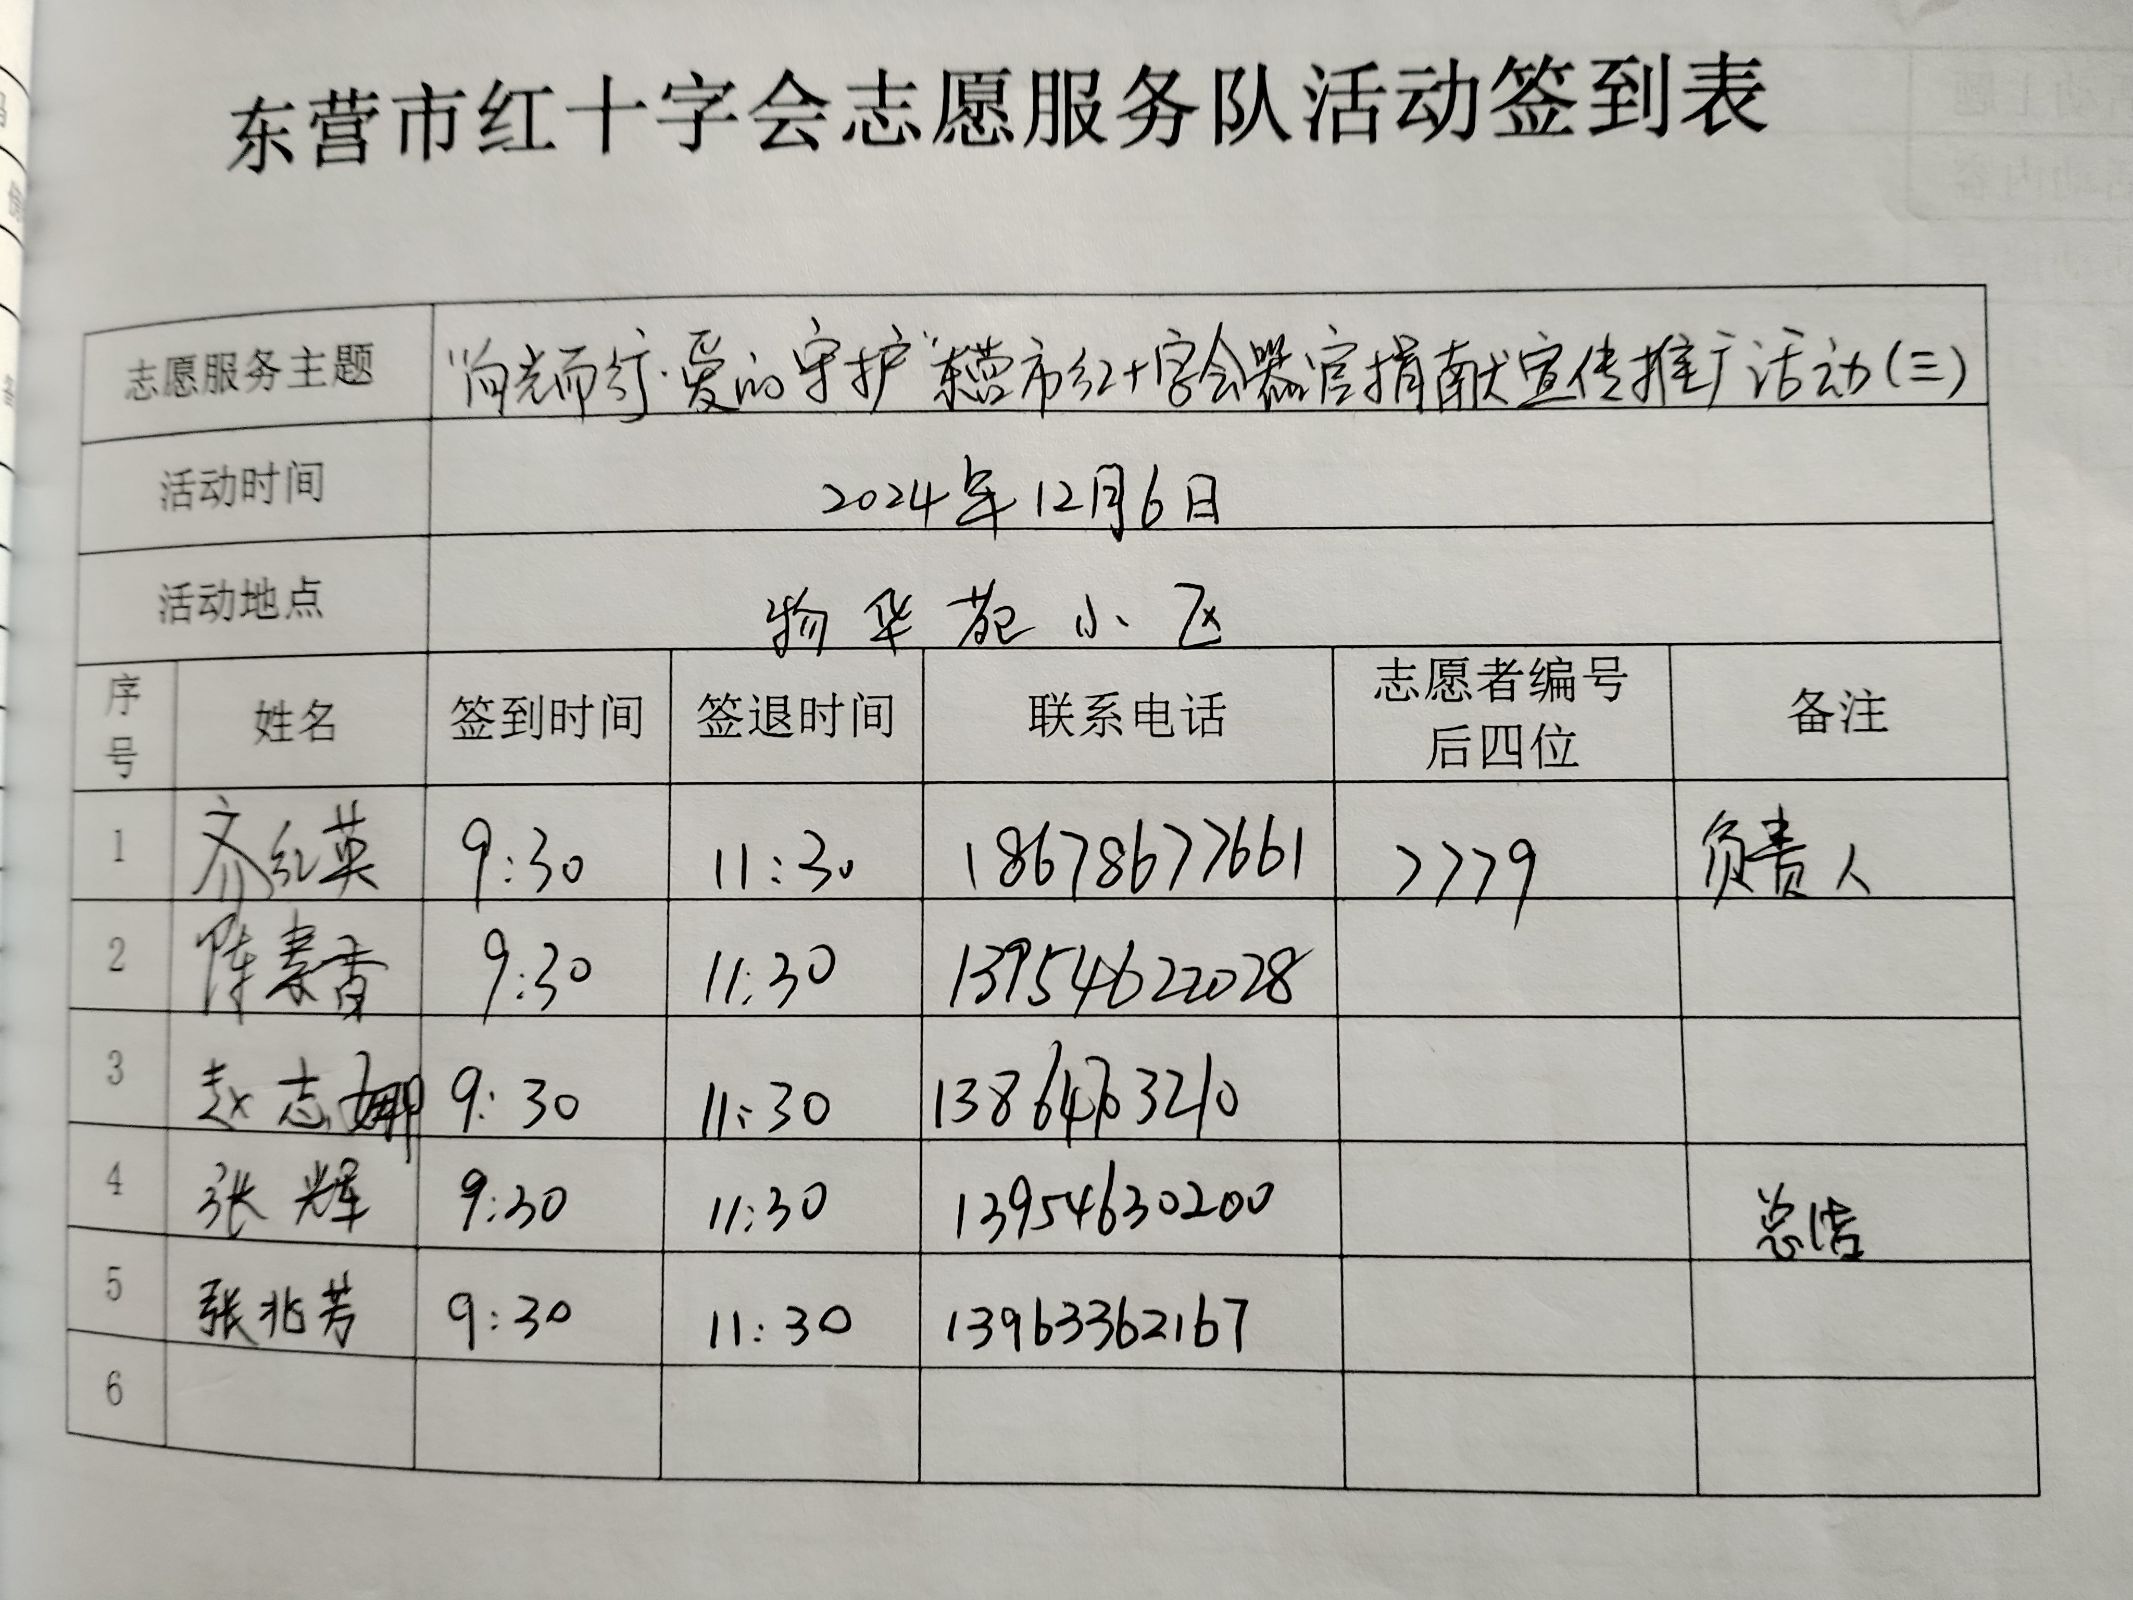 东营市红十字会志愿服务队活动签到表
志愿服务主题 "向光而行·爱的守护"东营市红十字会器官捐献宣传推广活动(三)
活动时间 2024年12月6日
活动地点 物华苑小区
序号 姓名 签到时间 签退时间 联系电话 志愿者编号后四位 备注
1 齐红英 9:30 11:30 18678677661 7779 负责人
2 陈素香 9:30 11:30 13954622028
3 赵志娜 9:30 11:30 13864763210
4 张辉 9:30 11:30 13954630200 总结
5 张兆芳 9:30 11:30 13963362167
6